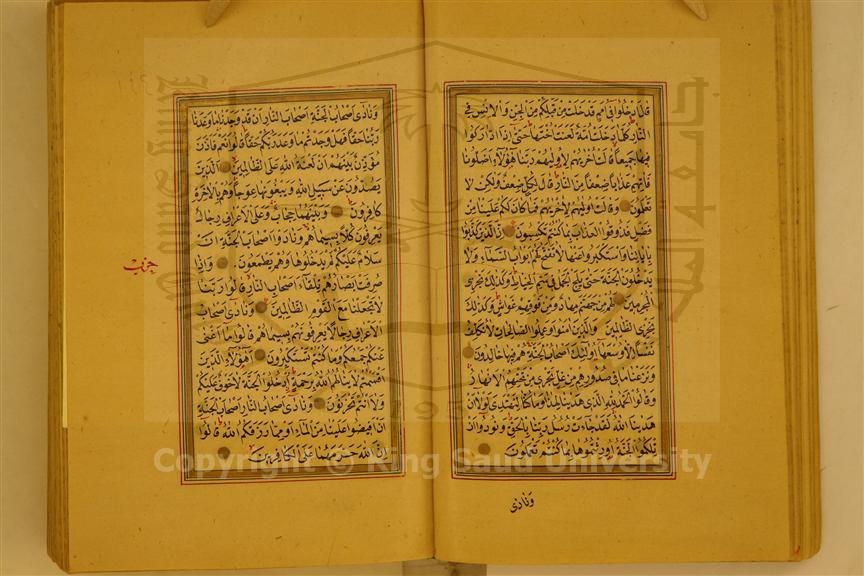 قال ادخلوا فى امم قد خلت من قبلكم من الجن والانس فى
النار كلما دخلت امة لعنت اختها حتى اذا اداركوا
فيها جميعا قالت اخريهم لاوليهم ربنا هؤلاء اضلونا
فاتهم عذابا ضعفا من النار قال لكل ضعف ولكن لا
تعلمون وقالت اوليهم لاخريهم فما كان لكم علينا من
فضل فذوقوا العذاب بما كنتم تكسبون ان الذين كذبوا
باياتنا واستكبروا عنها لا تفتح لهم ابواب السماء ولا
يدخلون الجنة حتى يلج الجمل فى سم الخياط وكذلك نجزى
المجرمين لهم من جهنم مهاد ومن فوقهم غواش وكذلك
نجزى الظالمين والذين امنوا وعملوا الصالحات لا نكلف
نفسا الا وسعها اولئك اصحاب الجنة هم فيها خالدون
ونزعنا ما فى صدورهم من غل تجرى من تحتهم الانهار
وقالوا الحمد لله الذى هدينا لهذا وما كنا لنهتدى لولا ان
هدينا الله لقد جاءت رسل ربنا بالحق ونودوا ان
تلكم الجنة اورثتموها بما كنتم تعملون
ونادى
ونادى اصحاب الجنة اصحاب النار ان قد وجدنا ما وعدنا
ربنا حقا فهل وجدتم ما وعد ربكم حقا قالوا نعم فاذن
مؤذن بينهم ان لعنة الله على الظالمين الذين
يصدون عن سبيل الله ويبغونها عوجا وهم بالاخرة
كافرون وبينهما حجاب وعلى الاعراف رجال
يعرفون كلا بسيماهم ونادوا اصحاب الجنة ان
سلام عليكم لم يدخلوها وهم يطمعون واذا
صرفت ابصارهم تلقاء اصحاب النار قالوا ربنا
لا تجعلنا مع القوم الظالمين ونادى اصحاب
الاعراف رجالا يعرفونهم بسيماهم قالوا ما اغنى
عنكم جمعكم وما كنتم تستكبرون اهؤلاء الذين
اقسمتم لا ينالهم الله برحمة ادخلوا الجنة لا خوف عليكم
ولا انتم تحزنون ونادى اصحاب النار اصحاب الجنة
ان افيضوا علينا من الماء او مما رزقكم الله قالوا
ان الله حرمهما على الكافرين
حزب
جامعة الملك سعود
1957
Copyright © King Saud University